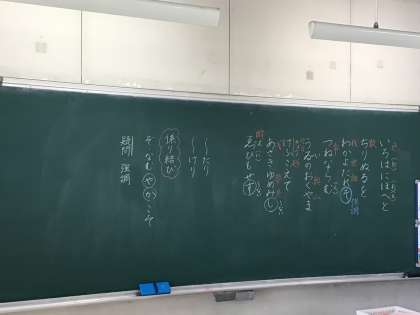 いろはにほへと
ちりぬるを
わかよたれそ
強調
つねならむ
うゐのおくやま
けふこえて
あさきゆめみし
酔
ゑひもせす
〜たり
〜けり
係り結び
ぞ なむ や か こそ
疑問 強調